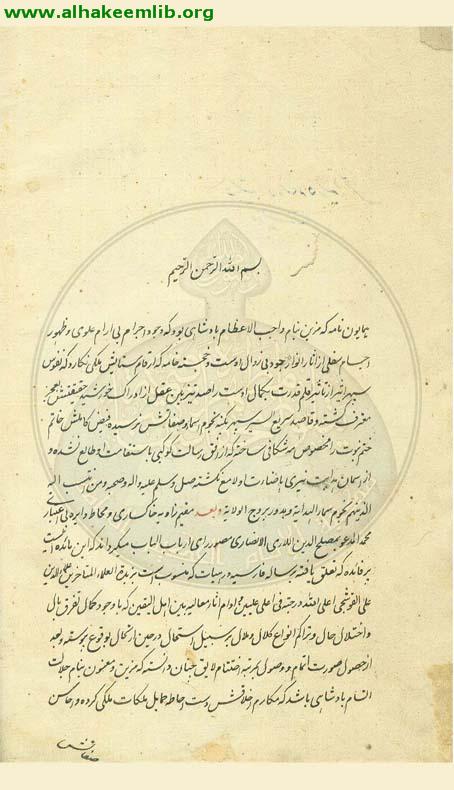 www.alhakeemlib.org
بسم الله الرحمن الرحیم
همایون نامه که مزین بنام واجب الاعظام بادشاهی بود که وجود اجرام بی ارام علوی و ظهور
اجسام سفلی از آثار انوار جود بی زوال اوست و خجسته خامه که ارقام ستایش ملکی نگارد که نفوس
سپهر اثیر از تاثیر قلم قدرت بکمال اوست راصد تیزبین عقل از ادراک خورشید حقیقتش بعجز
معترف گشته و قاصد سریع السیر سپهر بکنه نجوم اسما و صفاتش نرسیده فیض کاملش خاتم
ختم نبوت را مخصوص مه شکافی ساخته که از افق رسالت کوکبی باستقامت او طالع نشده و
از اسمان هدایت نیری باضاءت او لامع نگشته صلی الله وسلم علیه واله وصحبه ومن انتسب الیه
الذین هم نجوم سماء الهدایة وبدور بروج الولایة وبعد مقیم زاویه خاکساری و محاط دایره بی اعتباری
محمد المدعو بمصلح الدین اللاری الانصاری مصور رای ارباب الباب میگرداند که این مائده ایست
پر فائده که تعلق یافته برساله فارسیه در هیات که منسوب است بزبدة العلماء المتاخرین علی والدین
علی القوشجی اعلی الله درجته فی اعلی علیین وادام اثار معالیه بین اهل الیقین که با وجود کمال تفرق بال
و اختلال حال و تراکم انواع کلال و ملال بر سبیل استعجال در حین ارتحال بوقوع پیوسته و بعد
از حصول صورت اتمام و وصول بمرتبه اختتام لایق چنان دانسته که مزین و معنون بنام جلالت
اتسام بادشاهی باشد که مکارم اخلاقش دست احاطه حمایل ملکات ملکی کرده و محاسن
صفاتش